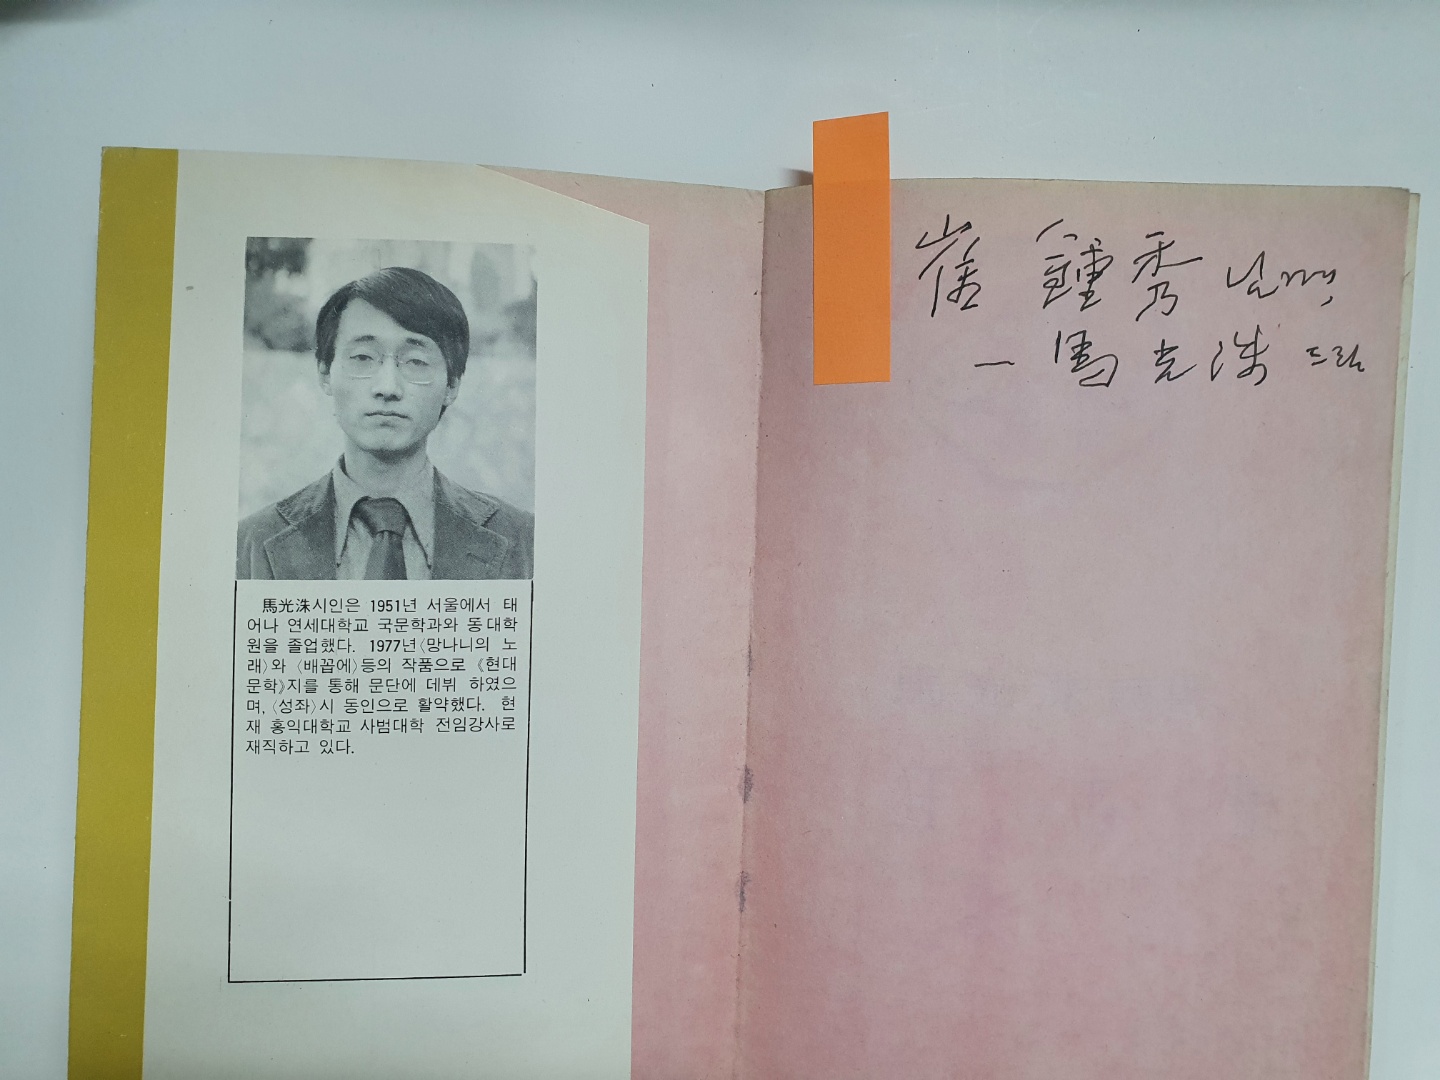 馬光洙시인은 1951년 서울에서 태
어나 연세대학교 국문학과와 동대학
원을 졸업했다. 1977년〈망나니의 노
래〉와 〈배꼽에〉등의 작품으로 《현대
문학》지를 통해 문단에 데뷔 하였으
며,〈성좌〉시 동인으로 활약했다. 현
재 홍익대학교 사범대학 전임강사로
재직하고 있다.
崔 鍾秀 님께,
— 馬光洙 드림